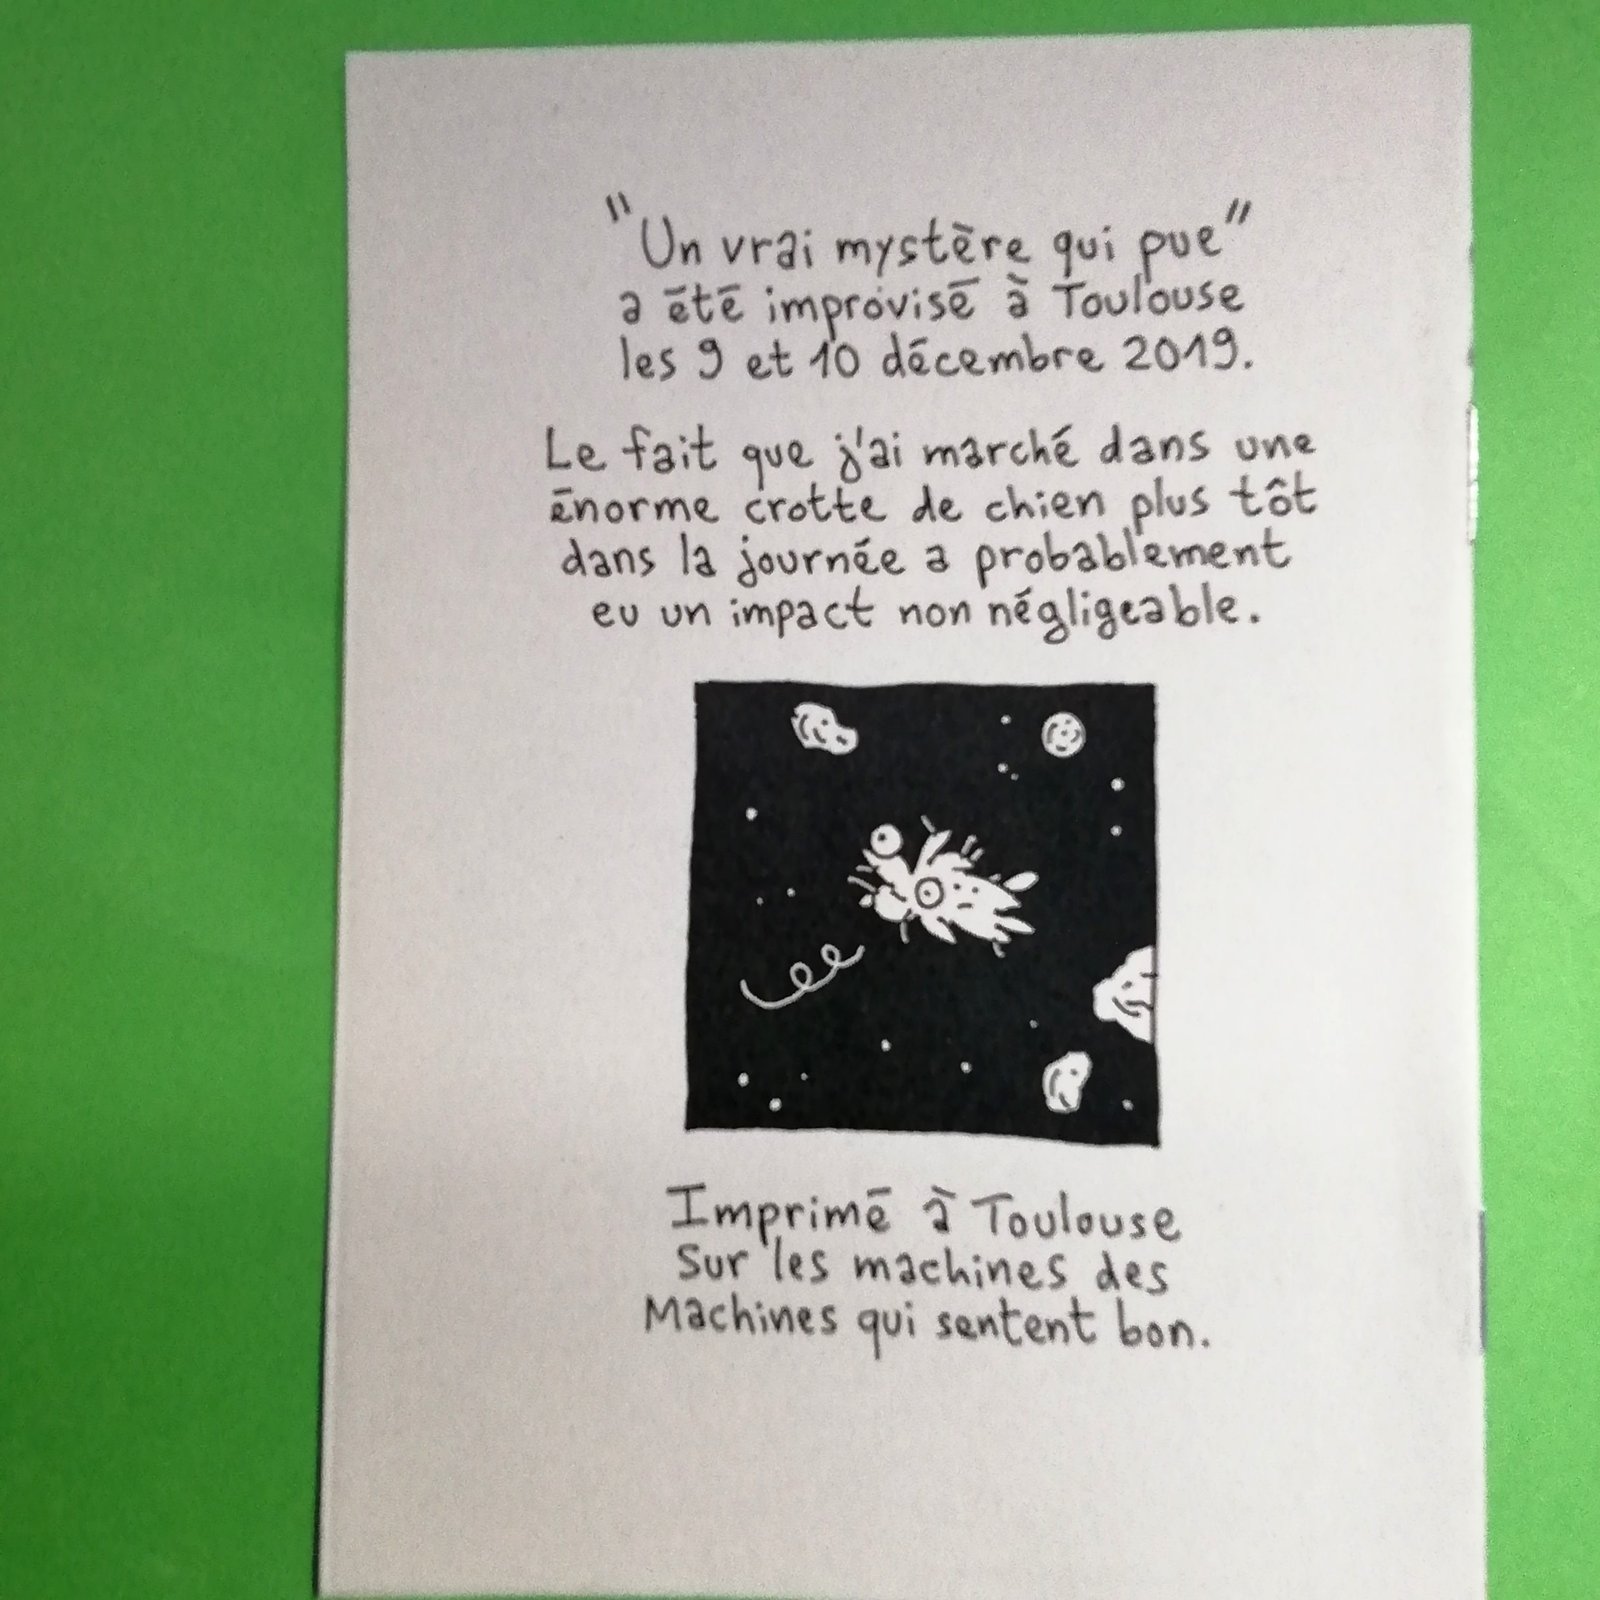 "Un vrai mystère qui pue"
a été improvisé à Toulouse
les 9 et 10 décembre 2019.
Le fait que j'ai marché dans une
énorme crotte de chien plus tôt
dans la journée a probablement
eu un impact non négligeable.
Imprimé à Toulouse
sur les machines des
Machines qui sentent bon.